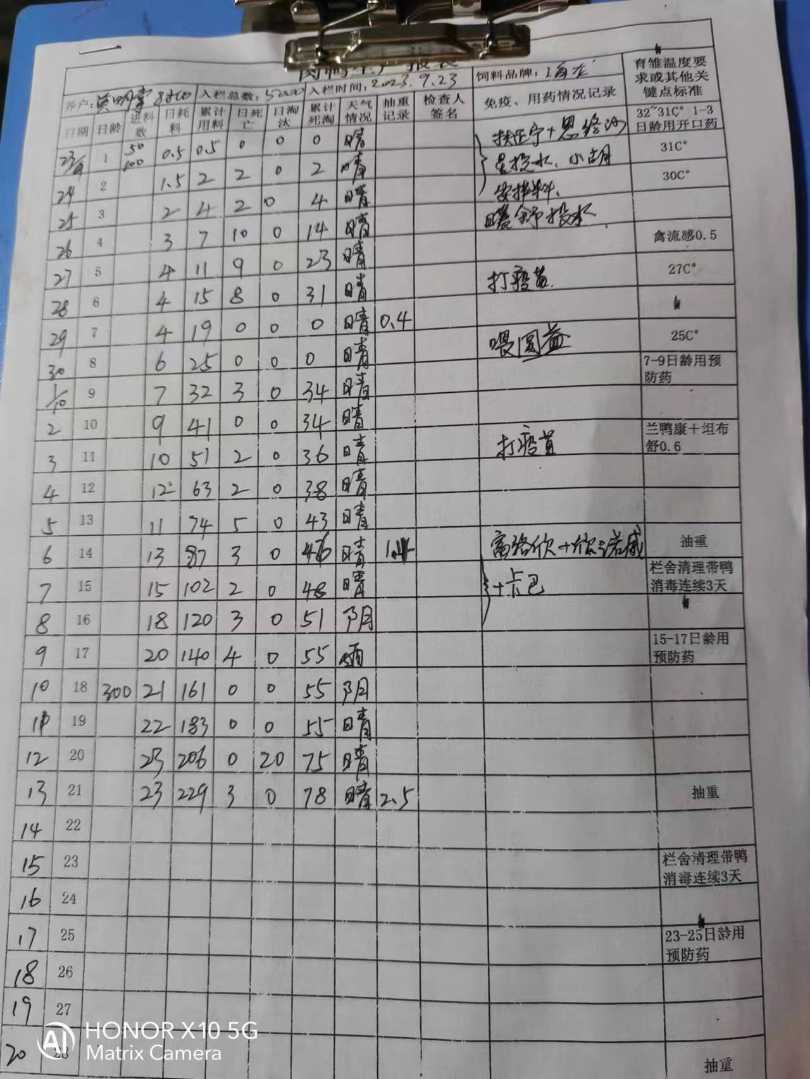 肉鸭生产报表
养户: 入栏总数: 5200 入栏时间: 2023.9.23 饲料品牌: 育雏温度要求或其他关键点标准
日期 日龄 进料数 日耗料 累计用料 日死亡 日淘汰 累计死淘 天气情况 抽重记录 检查人签名 免疫、用药情况记录 32~31C° 1-3日龄用开口药
23/9 1 50 100 0.5 0.5 0 0 0 晴 31C°
24 2 1.5 2 2 0 2 晴 30C°
25 3 2 4 2 0 4 晴
26 4 3 7 10 0 14 晴 禽流感0.5
27 5 4 11 9 0 23 晴 打疫苗 27C°
28 6 4 15 8 0 31 晴
29 7 4 19 0 0 0 晴 0.4 喂圆蓝 25C°
30 8 6 25 0 0 0 晴 7-9日龄用预防药
1/10 9 7 32 3 0 34 晴
2 10 9 41 0 0 34 晴 兰鸭康+坦布舒0.6
3 11 10 51 2 0 36 晴 打疫苗
4 12 12 63 2 0 38 晴
5 13 11 74 5 0 43 晴
6 14 13 87 3 0 46 晴 1.4 抽重
7 15 15 102 2 0 48 晴 +卡巴 栏舍清理带鸭消毒连续3天
8 16 18 120 3 0 51 阴
9 17 20 140 4 0 55 雨 15-17日龄用预防药
10 18 300 21 161 0 0 55 阴
11 19 22 183 0 0 55 晴
12 20 23 206 0 20 75 晴
13 21 23 229 3 0 78 晴 2.5 抽重
14 22
15 23 栏舍清理带鸭消毒连续3天
16 24
17 25 23-25日龄用预防药
18 26
19 27
20 28 抽重
AI HONOR X10 5G
Matrix Camera